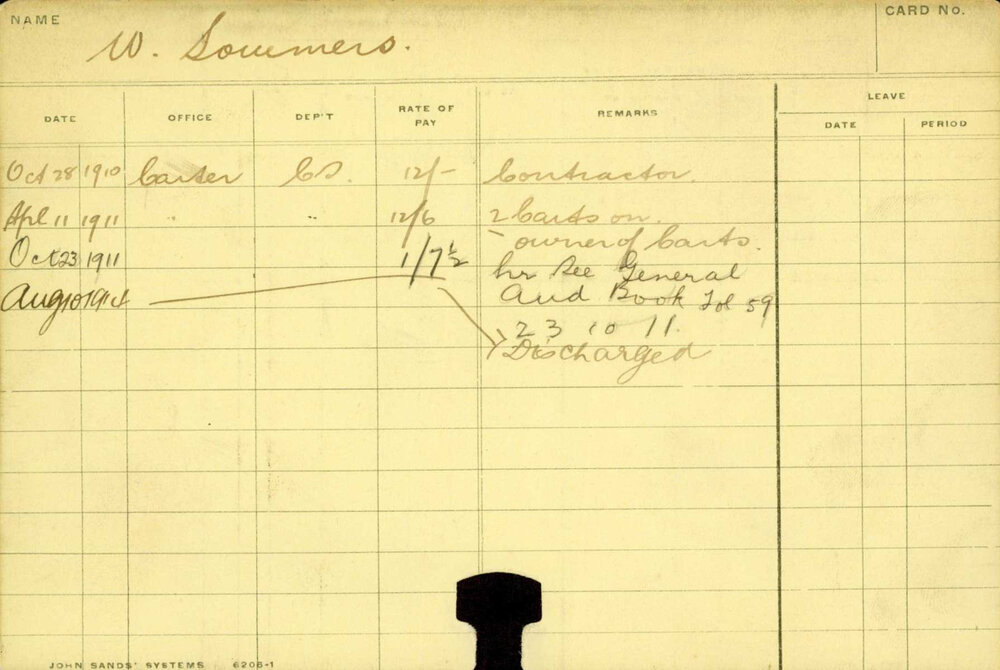 NAME
CARD No.
W. Sommers.
LEAVE
DATE OFFICE DEP'T RATE OF PAY REMARKS DATE PERIOD
Oct 28 1910 Carter CS. 12/- Contractor.
Apl 11 1911 " " 12/6 2 Carts on.
- owner of Carts.
Oct 23 1911 1/7½ hr See General
Aug 10 1914 and Book Fol 59
23 10 11.
Discharged
JOHN SANDS' SYSTEMS 6206-1